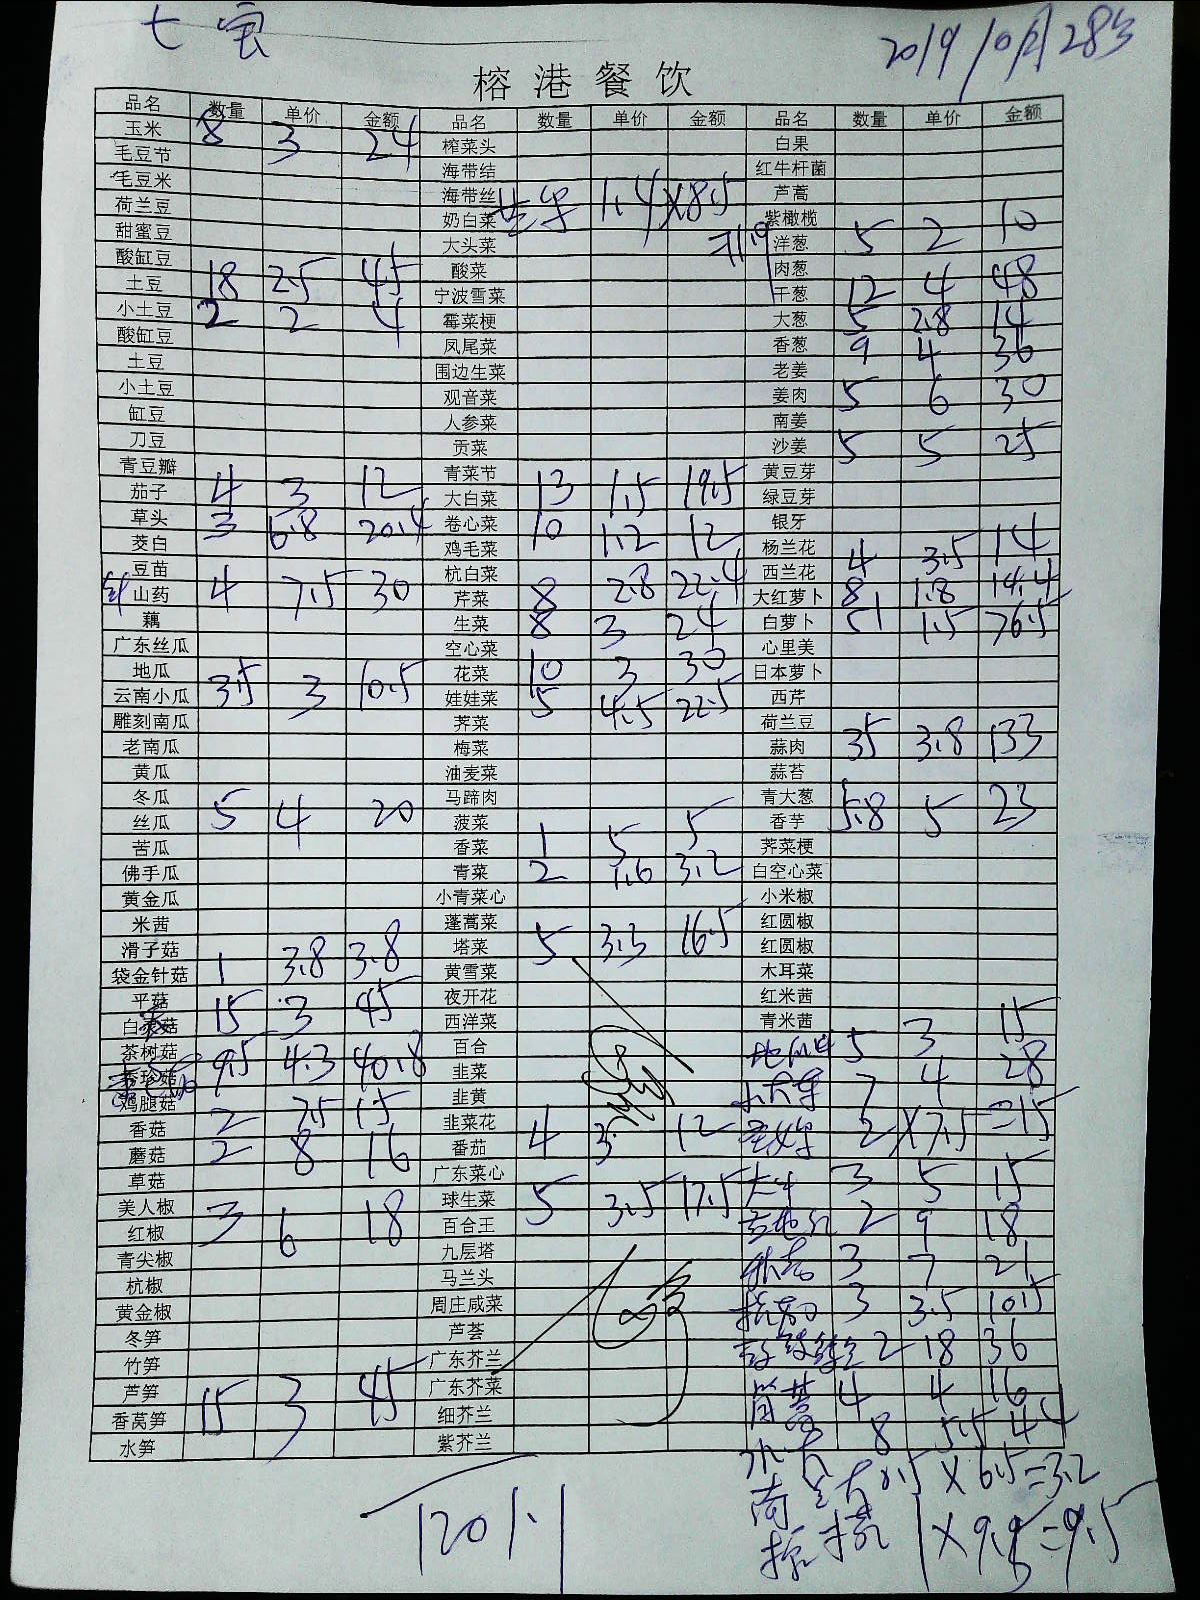 七宝
2019 10月28号
榕港餐饮
品名 数量 单价 金额 品名 数量 单价 金额 品名 数量 单价 金额
玉米 8 3 24 榨菜头 白果
毛豆节 海带结 红牛杆菌
毛豆米 海带丝 芦蒿
荷兰豆 奶白菜 1.4×8.5 紫橄榄
甜蜜豆 大头菜 11.9 洋葱 5 2 10
酸缸豆 酸菜 肉葱
土豆 18 2.5 45 宁波雪菜 干葱 12 4 48
小土豆 2 2 4 霉菜梗 大葱 5 2.8 14
酸缸豆 凤尾菜 香葱 9 4 36
土豆 围边生菜 老姜
小土豆 观音菜 姜肉 5 6 30
缸豆 人参菜 南姜
刀豆 贡菜 沙姜 5 5 25
青豆瓣 青菜节 黄豆芽
茄子 4 3 12 大白菜 13 1.5 19.5 绿豆芽
草头 3 6.8 20.4 卷心菜 10 1.2 12 银牙
茭白 鸡毛菜 杨兰花
豆苗 杭白菜 西兰花 4 3.5 14
山药 4 7.5 30 芹菜 8 2.8 22.4 大红萝卜 8 1.8 14.4
藕 生菜 8 3 24 白萝卜 51 1.5 76.5
广东丝瓜 空心菜 心里美
地瓜 花菜 10 3 30 日本萝卜
云南小瓜 3.5 3 10.5 娃娃菜 5 4.5 22.5 西芹
雕刻南瓜 荠菜 荷兰豆
老南瓜 梅菜 蒜肉 35 3.8 133
黄瓜 油麦菜 蒜苔
冬瓜 马蹄肉 青大葱
丝瓜 5 4 20 菠菜 香芋 5.8 5 23
苦瓜 香菜 1 5 5 荠菜梗
佛手瓜 青菜 2 1.6 3.2 白空心菜
黄金瓜 小青菜心 小米椒
米茜 蓬蒿菜 红圆椒
滑子菇 塔菜 5 3.3 16.5 红圆椒
袋金针菇 1 3.8 3.8 黄雪菜 木耳菜
平菇 夜开花 红米茜
白灵菇 15 3 45 西洋菜 青米茜
茶树菇 百合 5 3 15
秀珍菇 9.5 4.3 40.8 韭菜 7 4 28
鸡腿菇 韭黄 2×7.5=15
香菇 2 7.5 15 韭菜花
蘑菇 2 8 16 番茄 4 3 12
草菇 广东菜心 3 5 15
美人椒 球生菜 5 3.5 17.5
红椒 3 6 18 百合王 2 9 18
青尖椒 九层塔 3 7 21
杭椒 马兰头
黄金椒 周庄咸菜 3 3.5 10.5
冬笋 芦荟 2 18 36
竹笋 广东芥兰
芦笋 15 3 45 广东芥菜 4 4 16
香莴笋 细芥兰
水笋 紫芥兰 8 5.5 44
0.5×6.5=3.2
1×9.5=9.5
1201.1